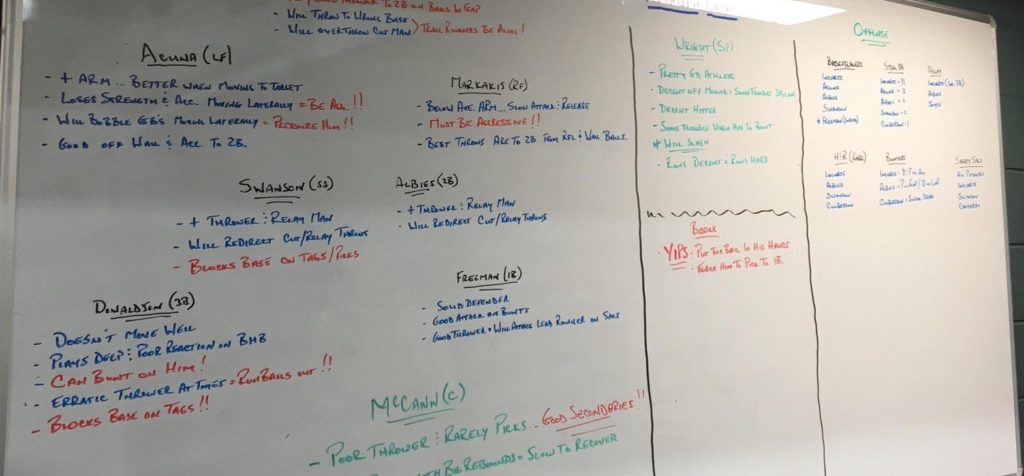 To 2B on Balls In Gap
- Will Throw To Wrong Base
- Will overthrow Cut Man > Trail Runners Be Alive!
Acuna (LF)
- + Arm... Better when Moving To Target
- Loses Strength & Acc. Moving Laterally = Be Agg.!!
- Will Bobble GB's Moving Laterally = Pressure Him!!
- Good off Wall & Acc. To 2B.
Markakis (RF)
- Below Ave. Arm... Slow Attack & Release
- Must Be Aggressive!!
- Best Throws Are To 2B From RFL & Wall Balls.
Swanson (SS)
- + Thrower & Relay Man
- Will Redirect Cut/Relay Throws
- Blocks Base on Tags/Picks
Albies (2B)
- + Thrower & Relay Man
- Will Redirect Cut/Relay Throws
Donaldson (3B)
- Doesn't Move Well
- Plays Deep & Poor Reaction on BHB
- Can Bunt on Him!
- Erratic Thrower At Times = Run Balls out!!
- Blocks Base on Tags!!
Freeman (1B)
- Solid Defender
- Good Attack on Bunts
- Good Thrower = Will Attack Lead Runner on Sacs
McCann (C)
- Poor Thrower & Rarely Picks... Good Secondaries!!
Rebounds = Slow To Recover
Wright (SP)
- Pretty Gd Athlete
- Decent off Mound
- Decent Hitter
- Some Trouble When Has To Bunt
* Will Slash
- Runs Decent & Runs Hard
Biddle
- YIPS - Put The Ball In His Hands
- Force Him To Pick To 1B.
Offense
Basestealers
Inciarte
Acuna
Albies
Swanson
* Freeman
Steal 3B
Inciarte
Acuna
Albies = 2
Swanson = 2
Culberson - 1
Inciarte
H&R
Inciarte
Albies
Swanson
Culberson
Bunters
Inciarte
Albies
Culberson
Safety Sqs
All Pitchers
Inciarte
Swanson